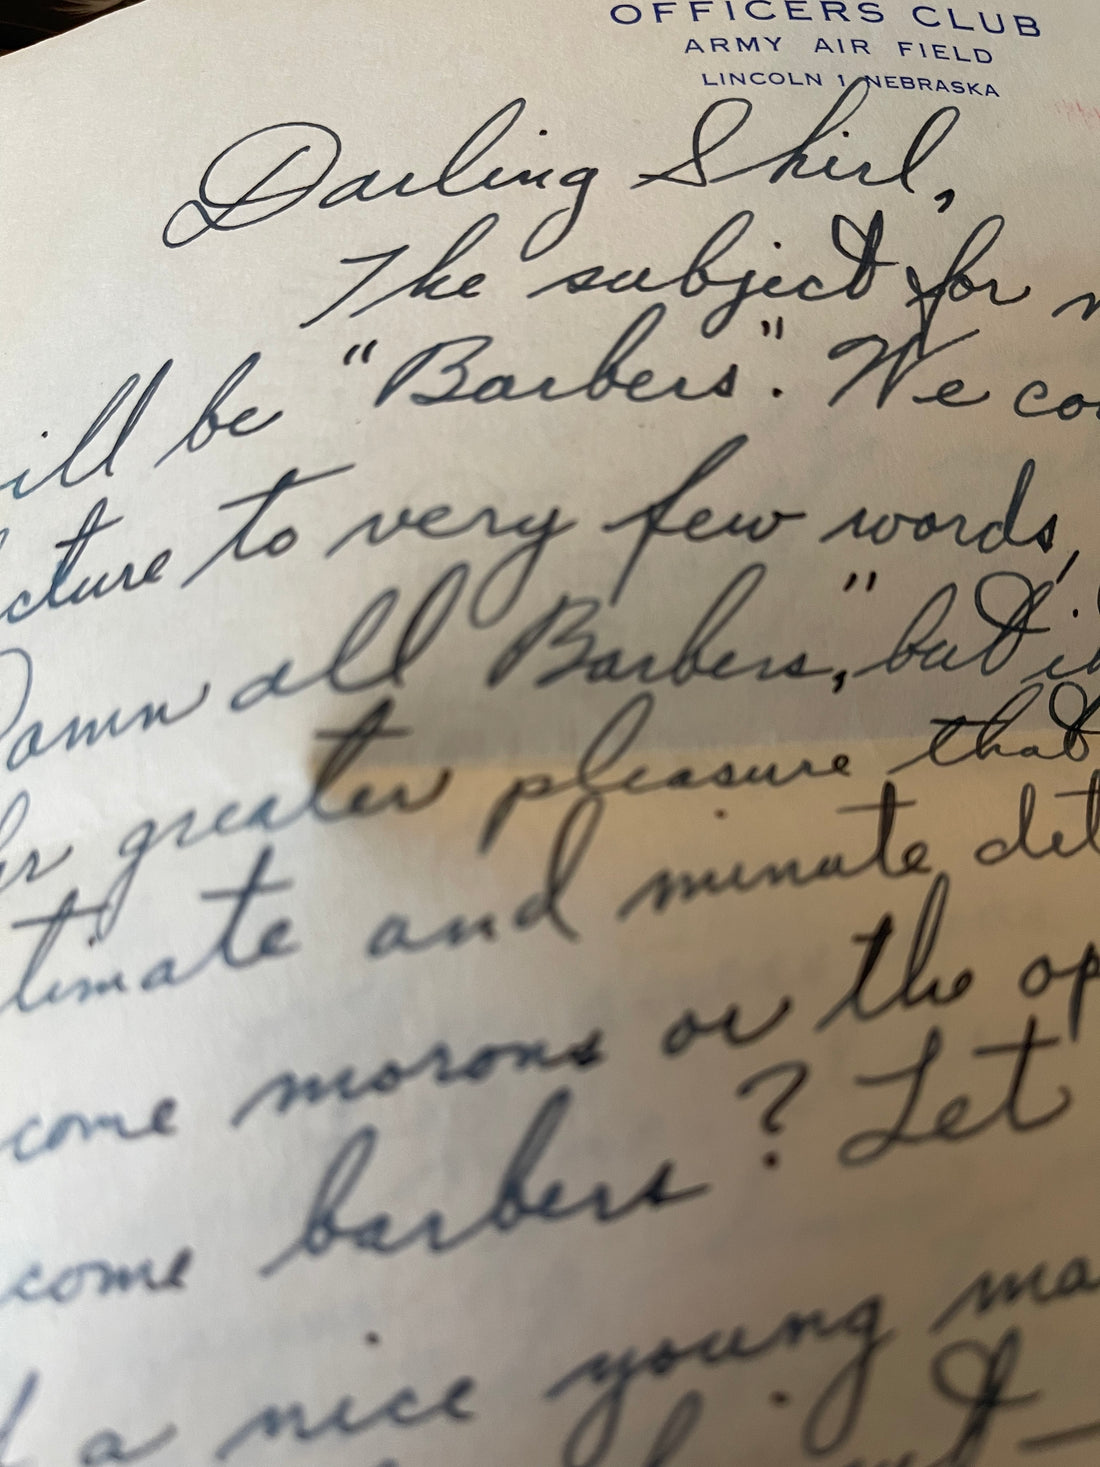 OFFICERS CLUB
ARMY AIR FIELD
LINCOLN 1, NEBRASKA
Darling Shirl,
The subject for
ill be "Barbers". We co
cture to very few words,
Damn all Barbers," but i
er greater pleasure that
timate and minute det
come morons or the op
come barbers? Let
a nice young ma